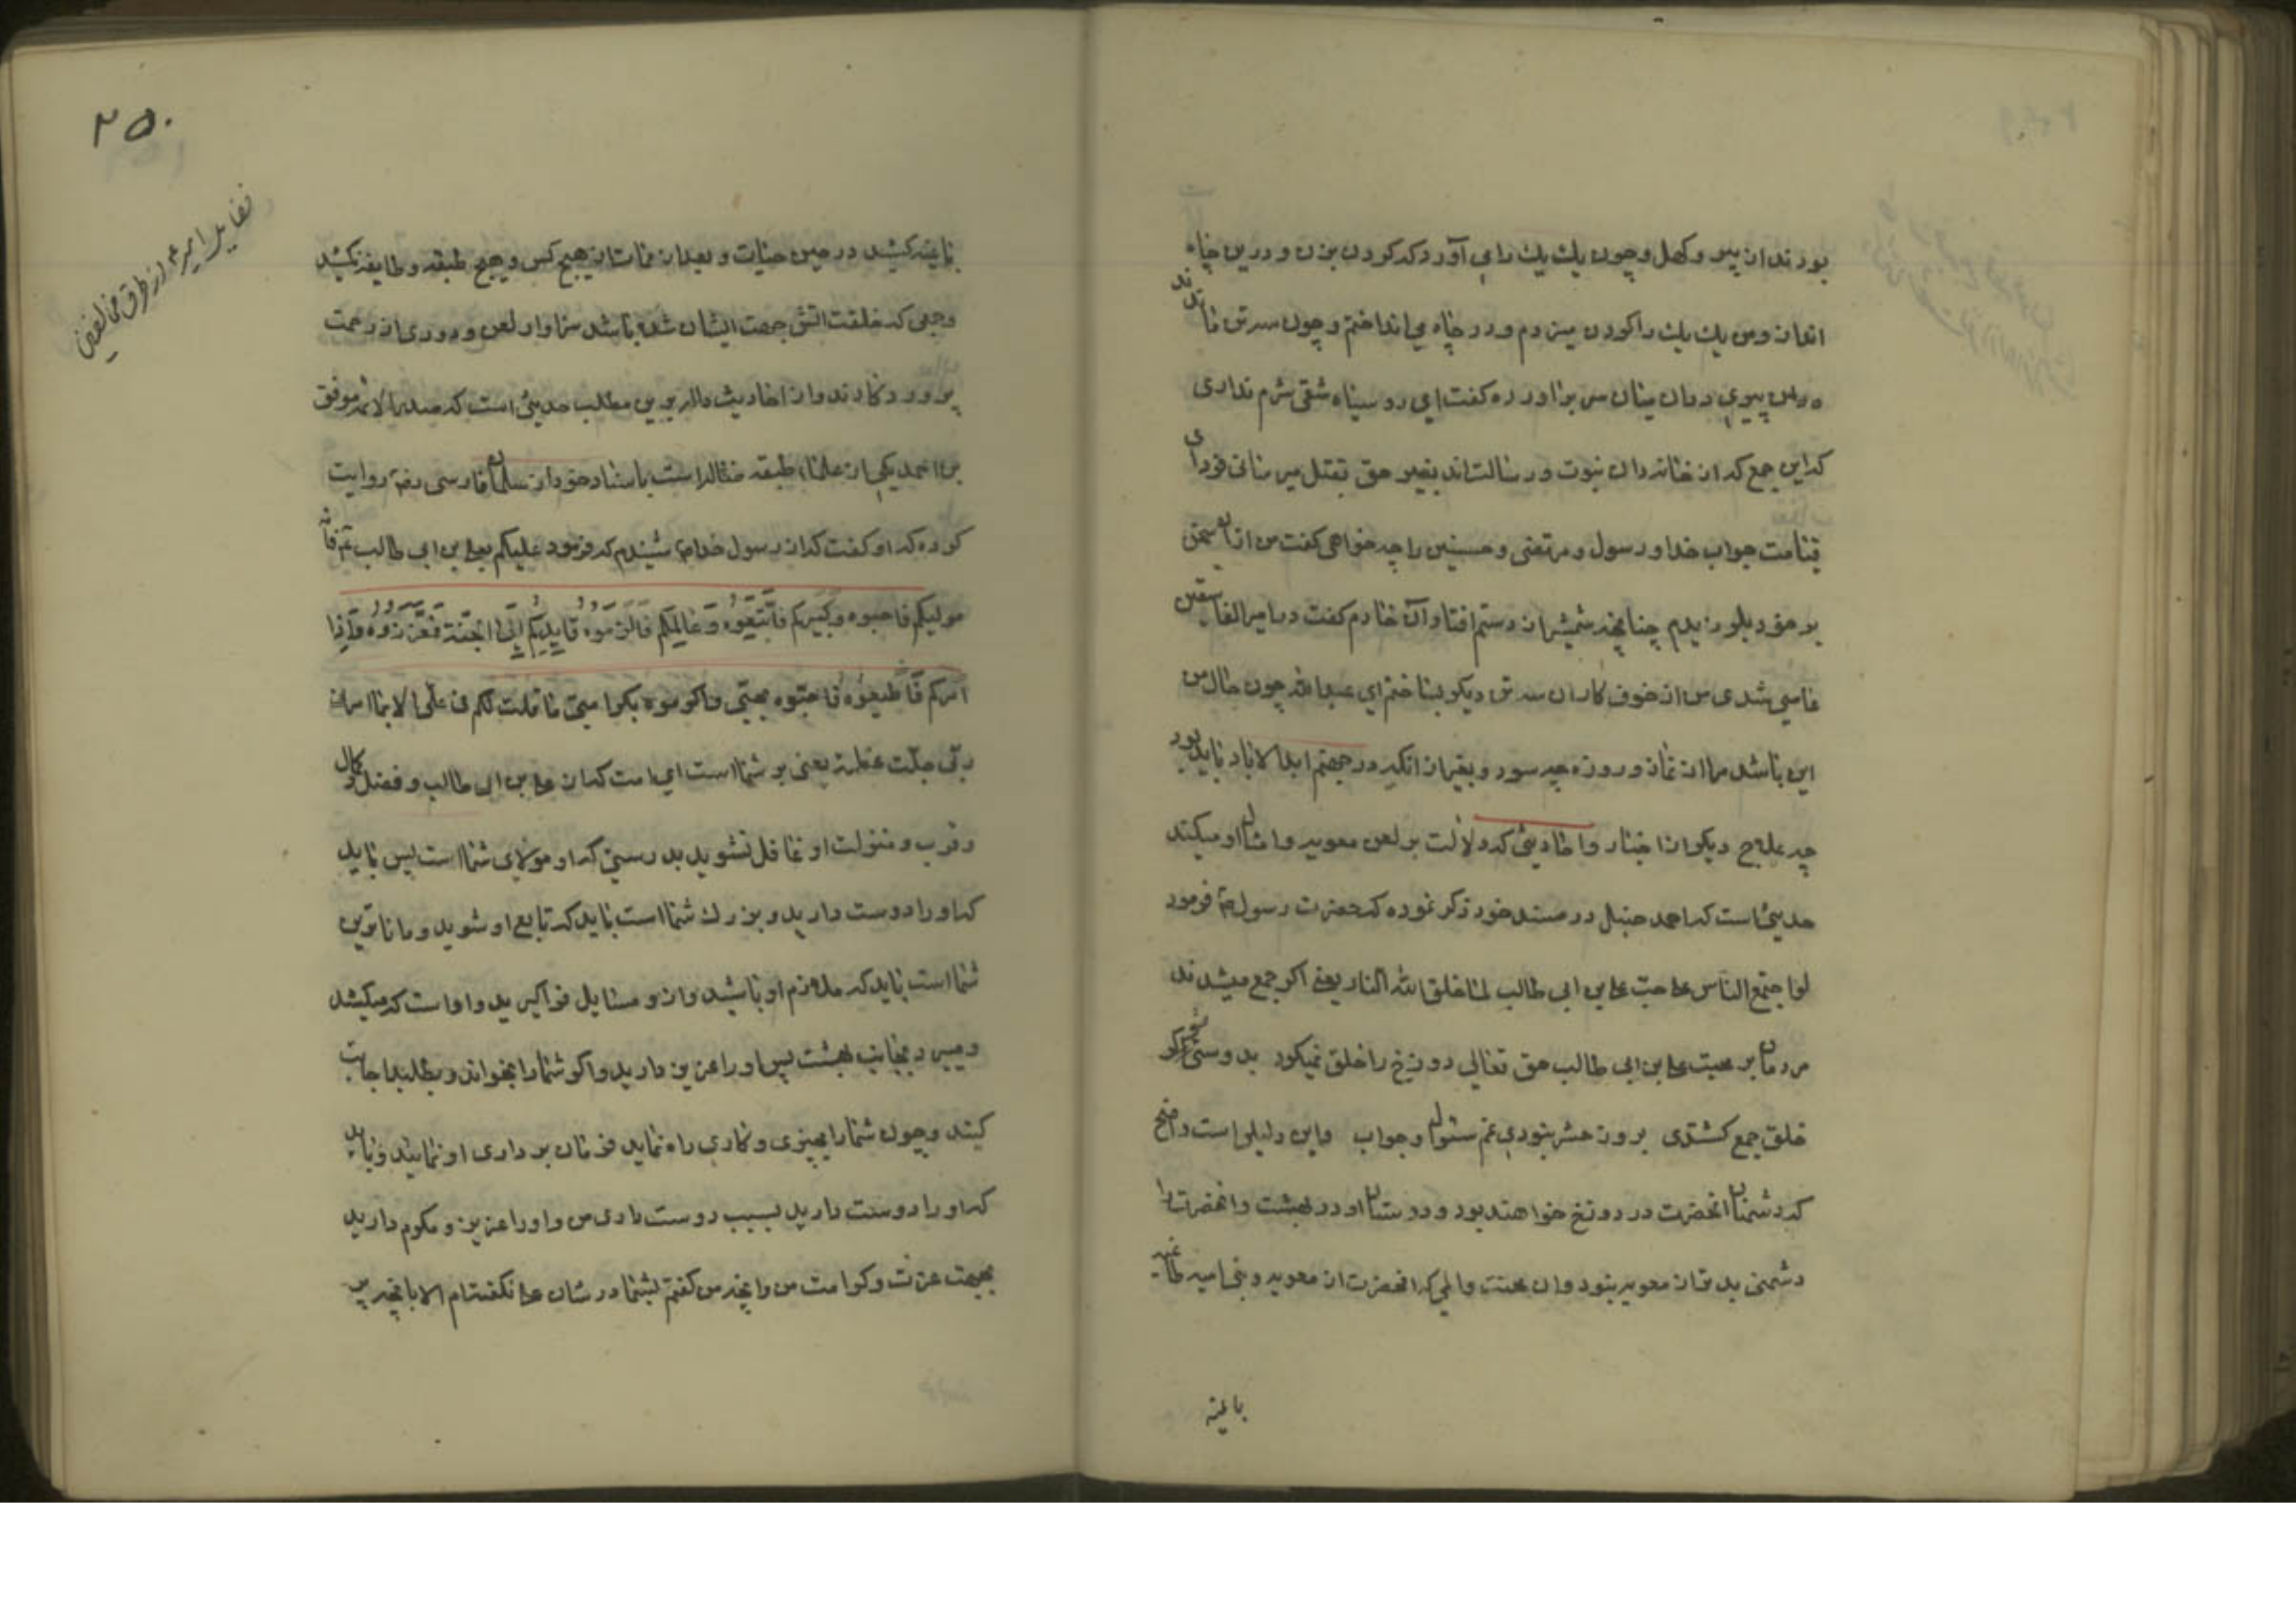 بودند از پیر و کهل و چون یك یك را می آورد که کردن بزن و درین چاه
انداز و من یك یك را کردن میزدم و در چاه می انداختم و چون سه تن ماندند
پیری در آن میان سر برآورده کفت ای رو سیاه شقی شرم نداری
که این جمع که از خاندان نبوت و رسالت اند بغیر حق بقتل میرسانی فردای
قیامت جواب خدا و رسول و مرتضی و حسنین را چه خواهی کفت من از این سخن
بر خود بلرزیدم چنانچه شمشیر از دستم افتاد آن خادم کفت در امیر الفاسقین
عاصی شدی من از خوف کار آن سه تن دیکر بساختم ای عبدالله چون حال من
این باشد مرا از نماز و روزه چه سود و بغیر از آنکه در جهنم ابد الاباد باید بود
چه علاج دیکر از اخبار و احادیثی که دلالت بر لعن معویه و امثال او میکند
حدیثی است که احمد حنبل در مسند خود ذکر نموده که حضرت رسول ص فرمود
لو اجتمع الناس علی حب علی بن ابی طالب لما خلق الله النار یعنی اکر جمع میشدند
مردمان بر محبت علی بن ابی طالب حق تعالی دوزخ را خلق نمیکرد بدوستی تو کر
خلق جمع کشتندی بروز حشر نبودی غم سئوال و جواب و این دلیلی است واضح
که دشمنان انحضرت در دوزخ خواهند بود و دوستان او در بهشت و انحضرت را
دشمنی بدتر از معویه نبود و ان محنت و المی که انحضرت از معویه و بنی امیه طاغیه
باغیه
۲۵۰
باغیه کشید در حین حیات و بعد از ممات از هیچ کس و هیچ طبقه و طایفه نکشید
و جمعی که خلقت اتش جهت ایشان شده باشد سزاوار لعن و دوری از رحمت
پروردکارند و از احادیث داله بر این مطلب حدیثی است که صدر الائمه موفق
بن احمد یکی از علماء طبقه ضاله است باسناد خود از سلمان فارسی رض روایت
کرده که او کفت که از رسول خدا ص شنیدم که فرمود علیکم بعلی بن ابی طالب ع فانه
مولیکم فاحبوه و کبیرکم فاتبعوه و عالمکم فاکرموه و قایدکم الی الجنة فعززوه و اذا
امرکم فاطیعوه فاحبوه بحبی و اکرموه بکرامتی ما قلت لکم فی علی الا ما امرنی
ربی جلت عظمته یعنی بر شما است ای امت که از علی بن ابی طالب و فضل و کمال
و قرب و منزلت او غافل نشوید بدرستی که او مولای شما است پس باید
که او را دوست دارید و بزرك شما است باید که تابع او شوید و داناترین
شما است باید که ملازم او باشید و از او مسایل فراکیرید و او است که میکشد
و میبرد بجانب بهشت پس او را عزیز دارید و اکر شما را بخواند و بطلبد اجابت
کنید و چون شما را بچیزی و کاری راه نماید فرمان برداری او نمایید و باید
که او را دوست دارید بسبب دوست داری من و او را عزیز و مکرم دارید
بجهت عزت و کرامت من و انچه من کفتم بشما در شان علی نکفته ام الا بانچه